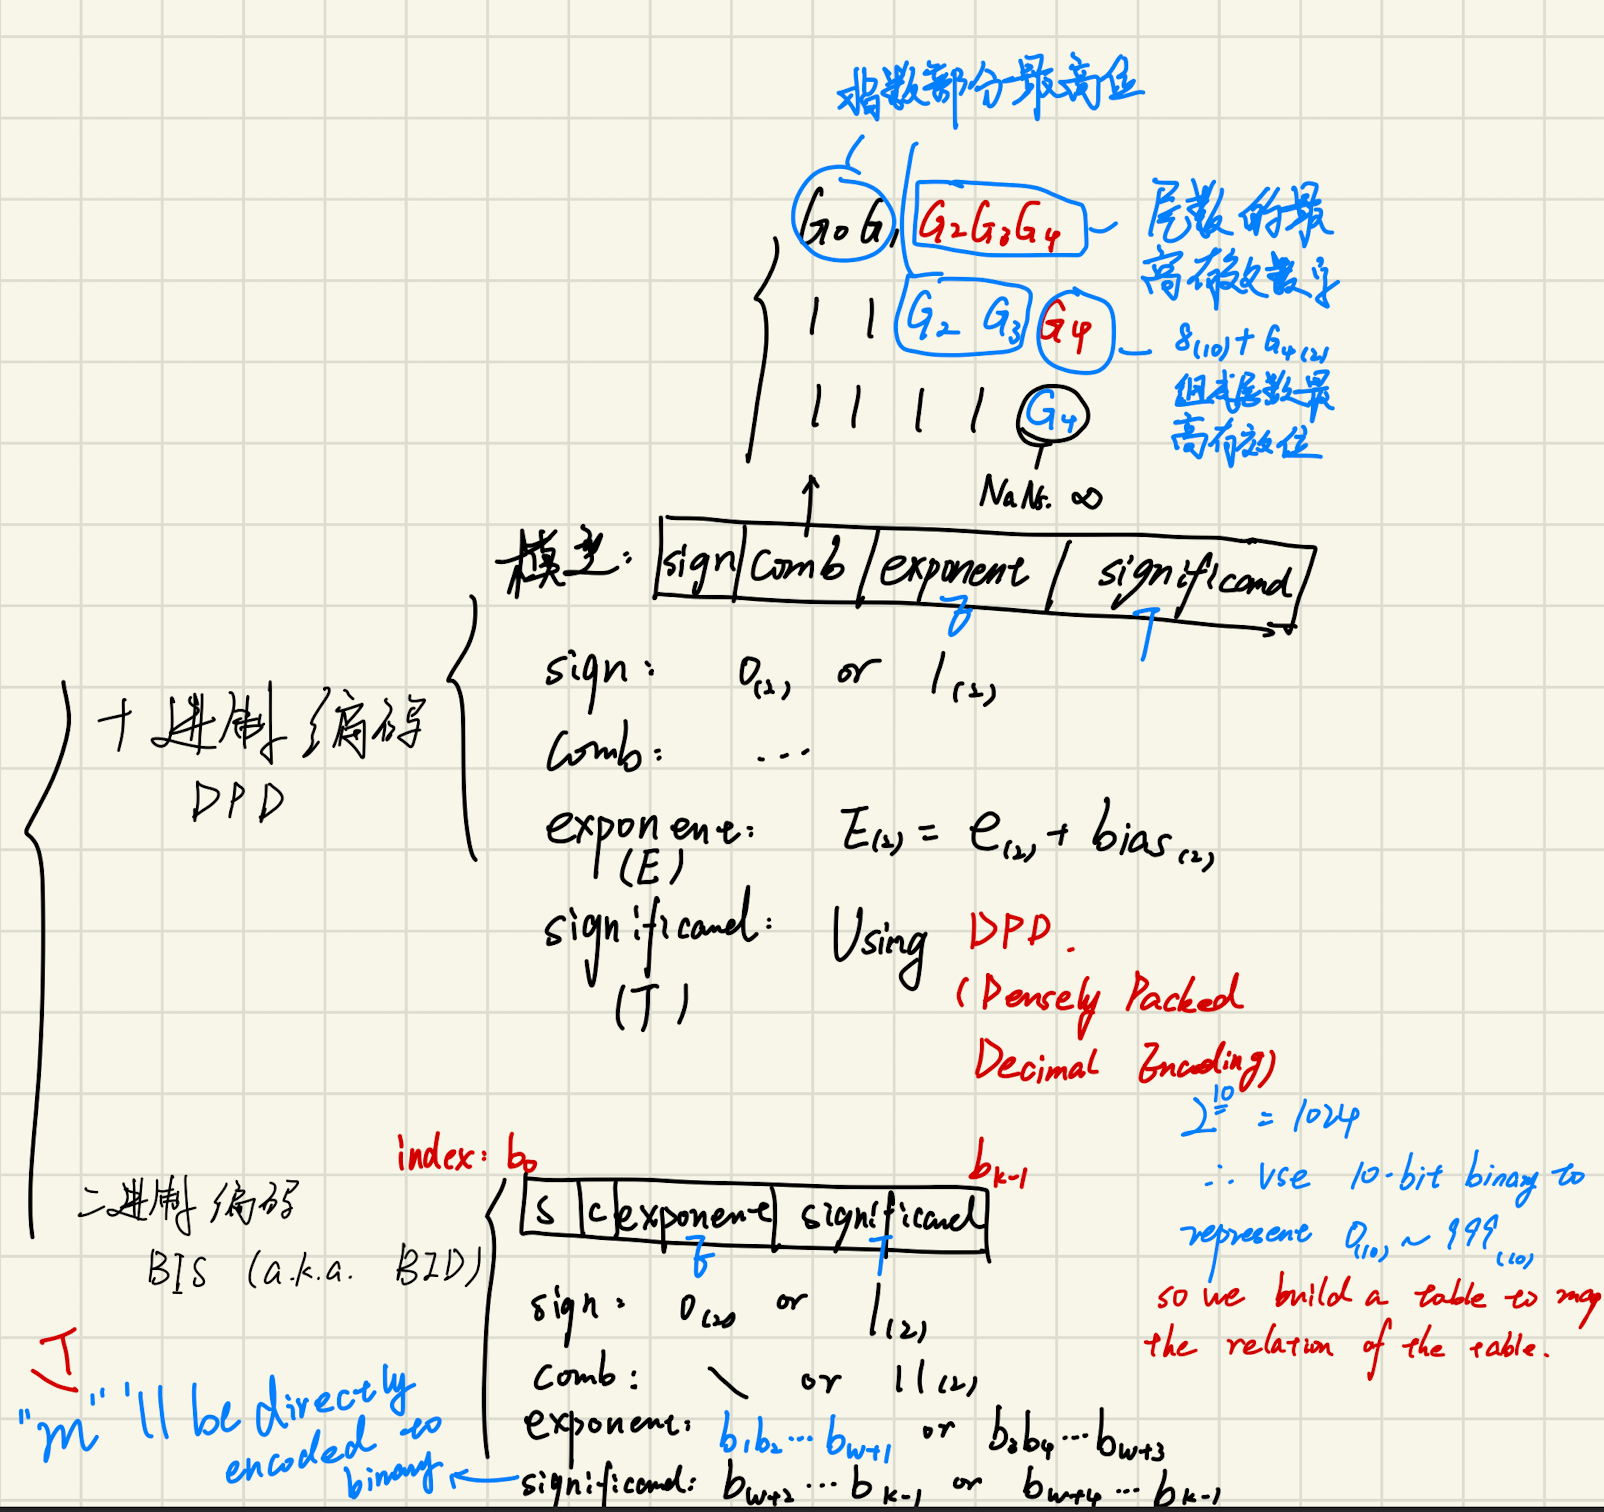 指数部分最高位
G₀G₁ G₂G₃G₄
尾数的最
高有效数字
1 1 G₂ G₃ G₄
8₍₁₀₎ + G₄₍₂₎
组成尾数最
高有效位
1 1 1 1 G₄
NaNs. ∞
模型: sign comb exponent significand
T
sign: 0₍₂₎ or 1₍₂₎
十进制编码
DPD
comb: ...
exponent: E₍₂₎ = e₍₂₎ + bias₍₂₎
(E)
significand: Using DPD.
(T)
(Densely Packed
Decimal Encoding)
2¹⁰ = 1024
∴ use 10-bit binary to
represent 0₍₁₀₎ ~ 999₍₁₀₎
so we build a table to map
the relation of the table.
index: b₀ bₖ₋₁
二进制编码
BIS (a.k.a. BID)
S C exponent significand
T
sign: 0₍₂₎ or 1₍₂₎
comb: \ or 11₍₂₎
exponent: b₁b₂...b_w+1 or b₃b₄...b_w+3
significand: b_w+2...b_k-1 or b_w+4...b_k-1
T
"m"'ll be directly
encoded to
binary